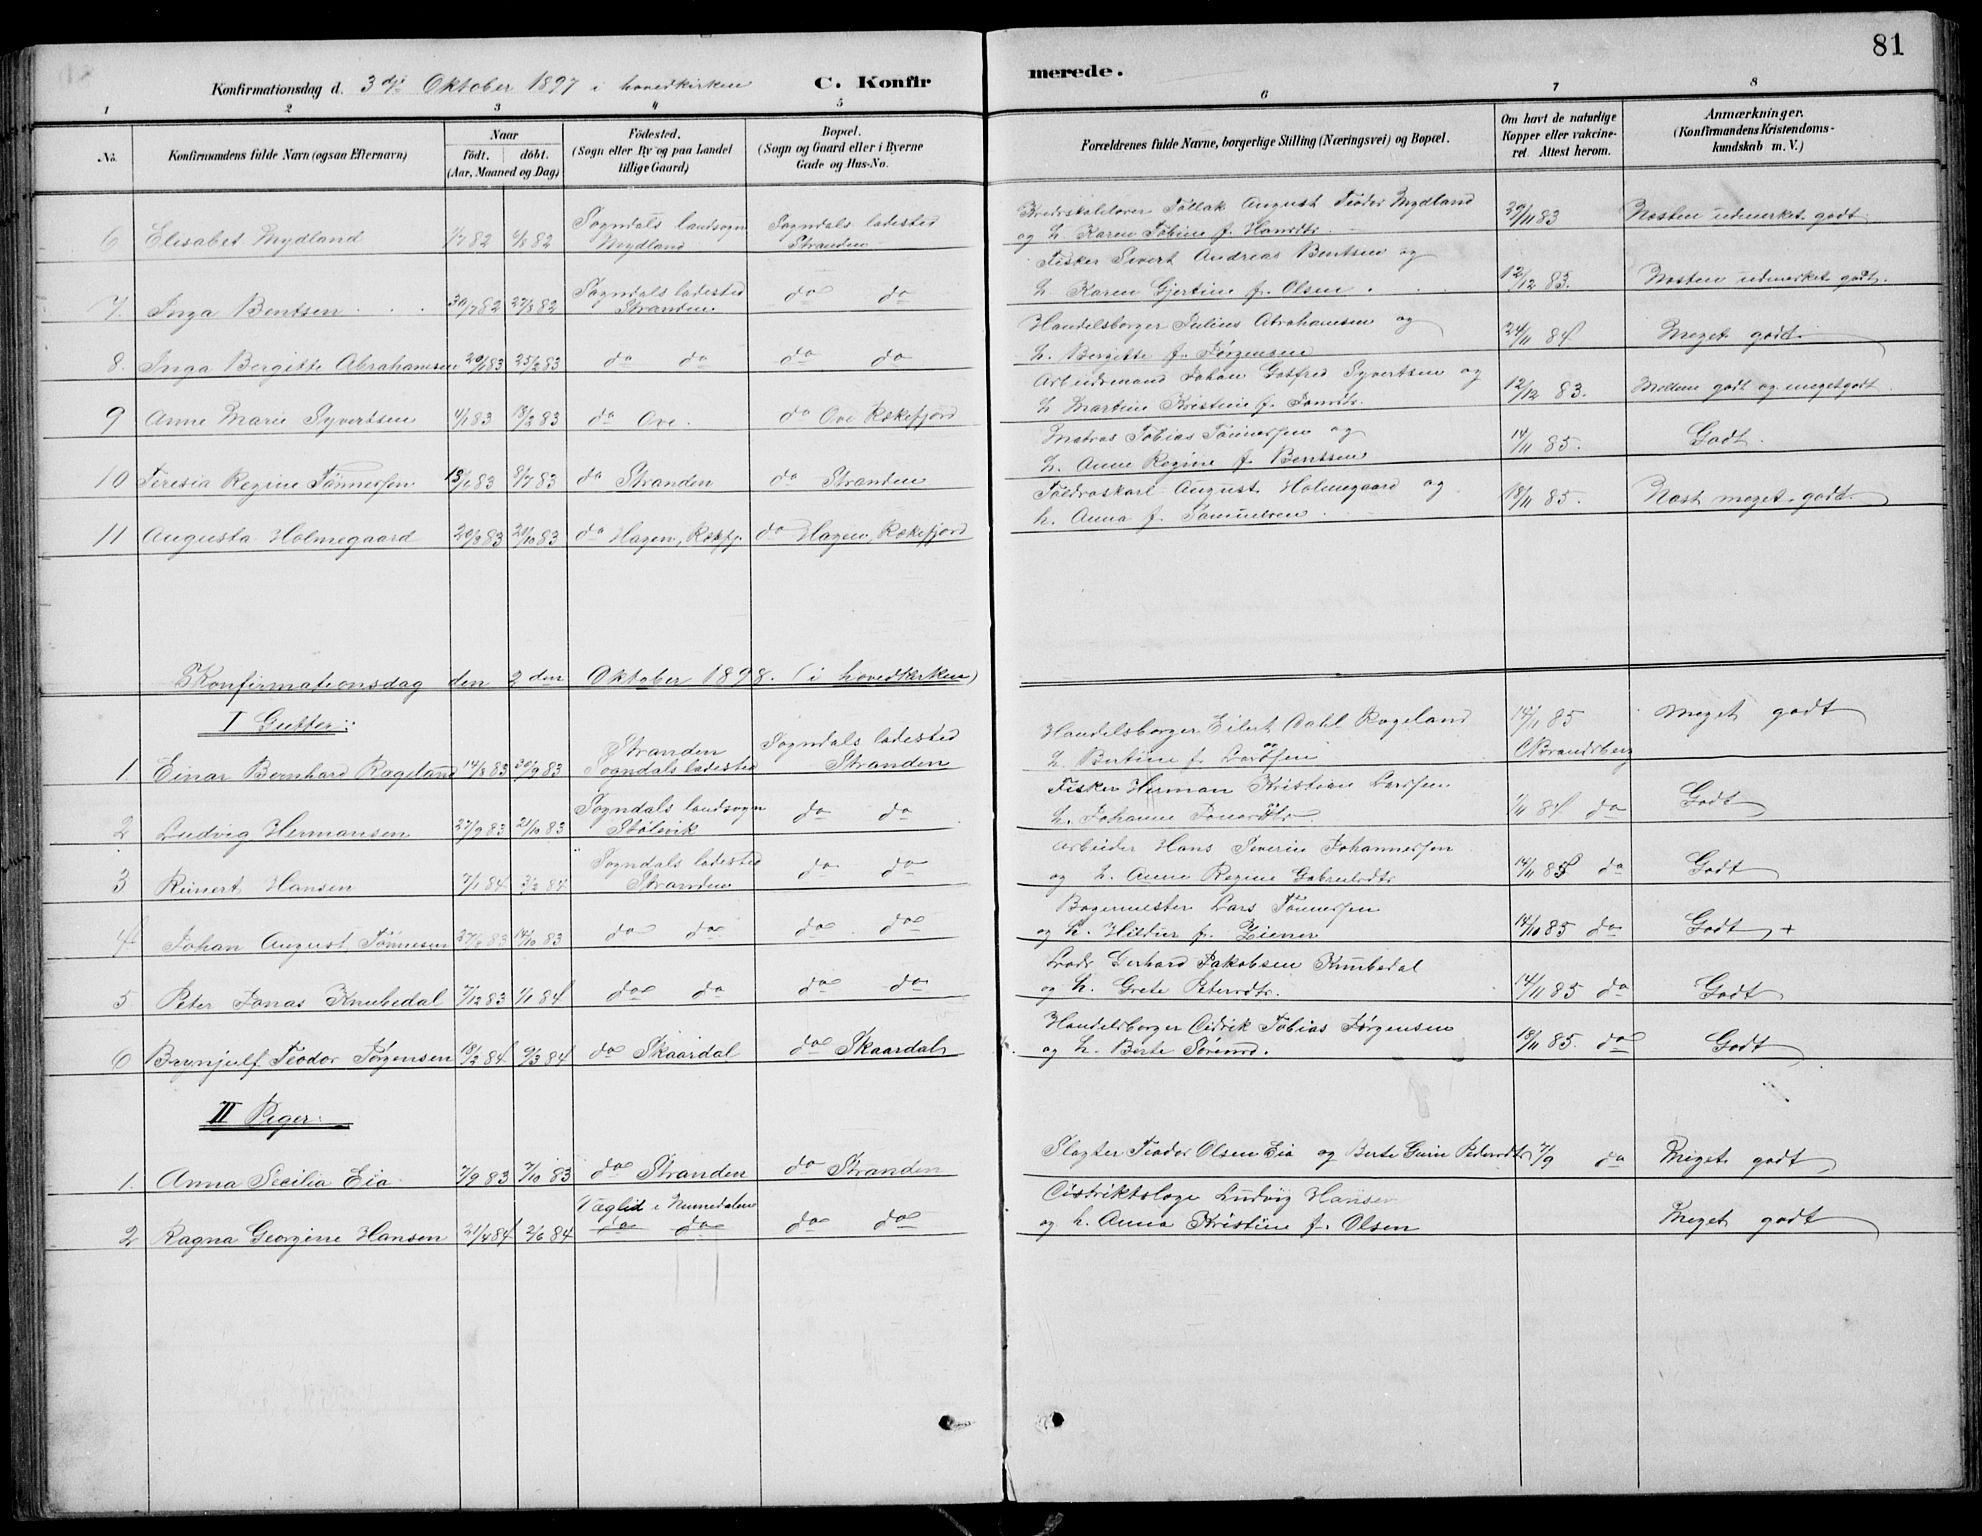 81
Konfirmationsdag d. 3die Oktober 1897 i hovedkirken C. Konfirmerede.
1 2 3 4 5 6 7 8
No. Konfirmandens fulde Navn (ogsaa Efternavn) Naar födt. döbt. (Aar, Maaned og Dag) Födested. (Sogn eller By og paa Landet tillige Gaard) Bopæl. (Sogn og Gaard eller i Byerne Gade og Hus-No. Forældrenes fulde Navne, borgerlige Stilling (Næringsvei) og Bopæl. Om havt de naturlige Kopper eller vakcineret. Attest herom. Anmærkninger. (Konfirmandens Kristendomskundskab m. V.)
6 Elisabet Mydland 1/7 82 6/8 82 Sogndals landsogn Mydland Sogndals ladested Stranden Tollak August Teodor Mydland og h. Karen Tobine f. Hansdtr. 30/11 83 Næsten udmerket godt
7. Inga Bentsen 30/7 82 27/8 82 Sogndals ladested Stranden. do do Fisker Sivert Andreas Bentsen og h. Karen Gjertine f. Olsen 12/12 83. Næsten udmerket godt.
8. Inga Bergitte Abrahamsen 20/1 83 25/2 83 do do do do Handelsborger Julius Abrahamsen og h. Bergitte f. Jørgensen 24/11 84 Meget godt
9 Anne Marie Syvertsen 4/1 83 18/2 83 do Ove. do Ove Rekefjord Arbeidsmand Johan Gotfred Syvertsen og h. Martine Kristine f. 12/12 83. Mellem godt og meget godt.
10 Teresia Regine Tönnessen 13/6 83 8/7 83 do Stranden do Stranden Matros Tobias Tönnessen og h. Anne Regine f. Bentsen 14/11 85. Godt.
11 Augusta Holmegaard 20/8 83 21/10 83 do Hagen, Rekefj. do Hagen, Rekefjord August Holmegaard og h. Anna f. Samuelsen 18/11 85. Næst meget godt.
Konfirmationsdag den 2den Oktober 1898. (i hovedkirken)
I Gutter:
1. Einar Bernhard Rageland 14/8 83 30/9 83 Stranden Sogndals ladested Sogndals ladested Stranden Handelsborger Eilert Dahl Rageland og h. Bertine f. Lardsen 14/11 85 C Brandsberg Meget godt
2 Ludvig Hermansen 27/9 83 21/10 83 Sogndals landsogn Stölevik do do Fisker Herman Kristian Lardsen h. Johanne 1/11 84 do Godt
3 Reinert Hansen 7/1 84 3/2 84 Sogndals ladested Stranden do do Arbeider Hans Severin Johannessen og h. Anne Regine Gabrielsdtr 14/11 85 do Godt
4 Johan August Tönnesen 27/8 83 14/10 83 do do do do Bagermester Lars Tönnessen og h. Hildier f. Ziener 14/10 85 do Godt +
5 Peter Jonas Knubedal 7/12 83 1/1 84 do do do do Lods Gerhard Jakobsen Knubedal og h. Grete Petersdtr. 14/11 85 do Godt
6 Brynjulf Teodor Jørgensen 18/2 84 9/3 84 do Skaardal do Skaardal Handelsborger Cidrik Tobias Jørgensen og h. Berte Sörensd. 18/11 85. do Godt
II Piger:
1. Anna Secilia Eia 7/9 83 7/10 83 do Stranden do Stranden Slagter Teodor Olsen Eia og Berte Gurine Pedersdtr 7/9 do Meget godt
2 Ragna Georgine Hansen 21/4 84 2/6 84 i Numedalen do do do do Distriktslæge Ludvig Hansen og h. Anna Kristine f. Olsen Meget godt